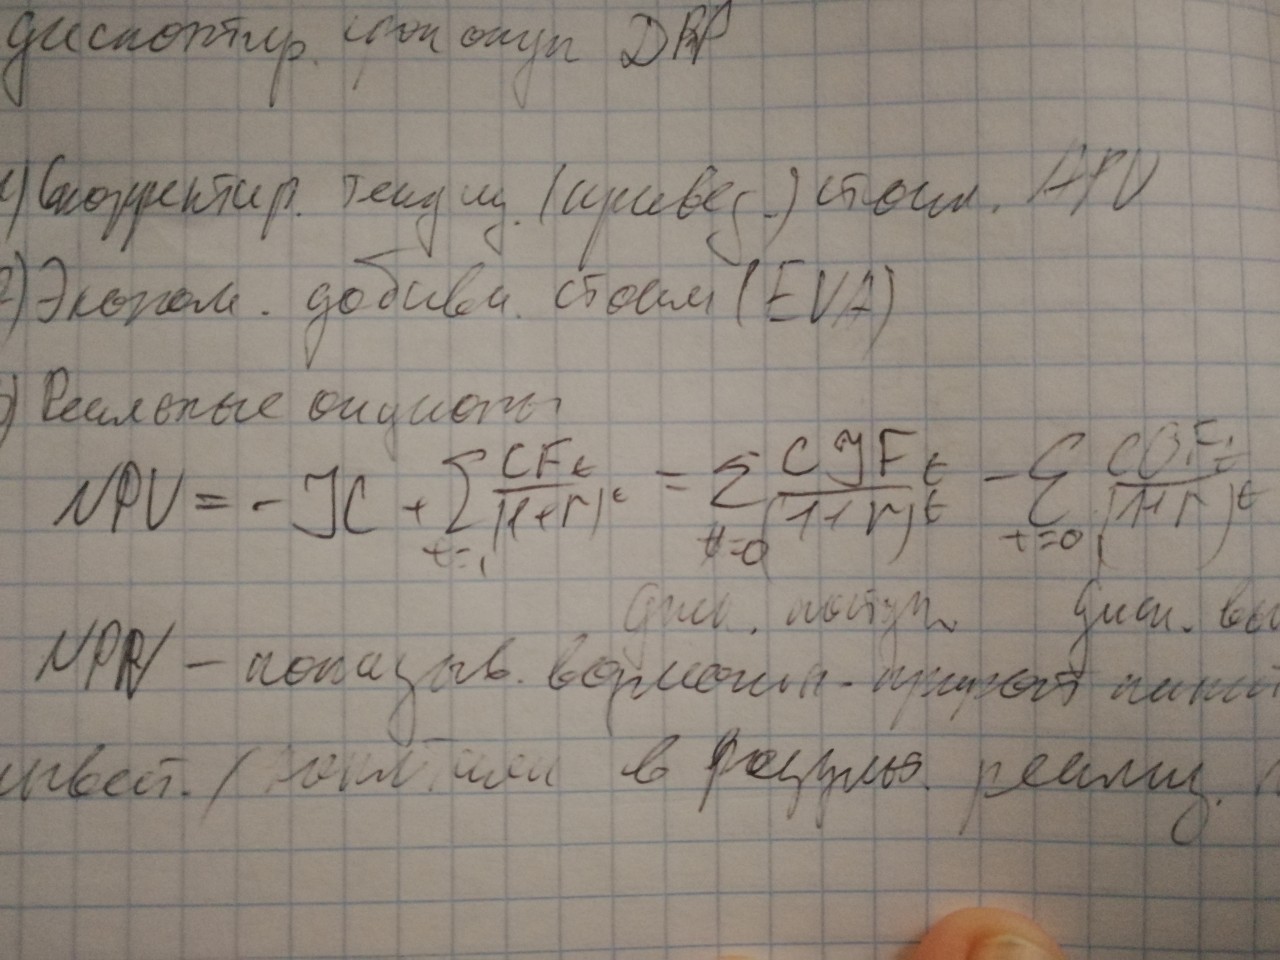 дисконтир. срок окуп DPP
1) Скорректир. текущ. (привед.) стоим. APV
2) Эконом. добавл. стоим (EVA)
3) Реальные опционы
NPV = - IC + ∑ t=1 CFt / (1+r)^t = ∑ t=0 CIFt / (1+r)^t - ∑ t=0 COFt / (1+r)^t
диск. поступ. диск. вы
NPV - показыв. возможн. прирост
инвест. / в результ. реализ.